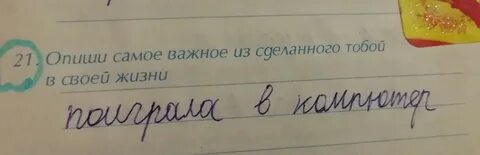 21. Опиши самое важное из сделанного тобой
в своей жизни
поиграла в компютер